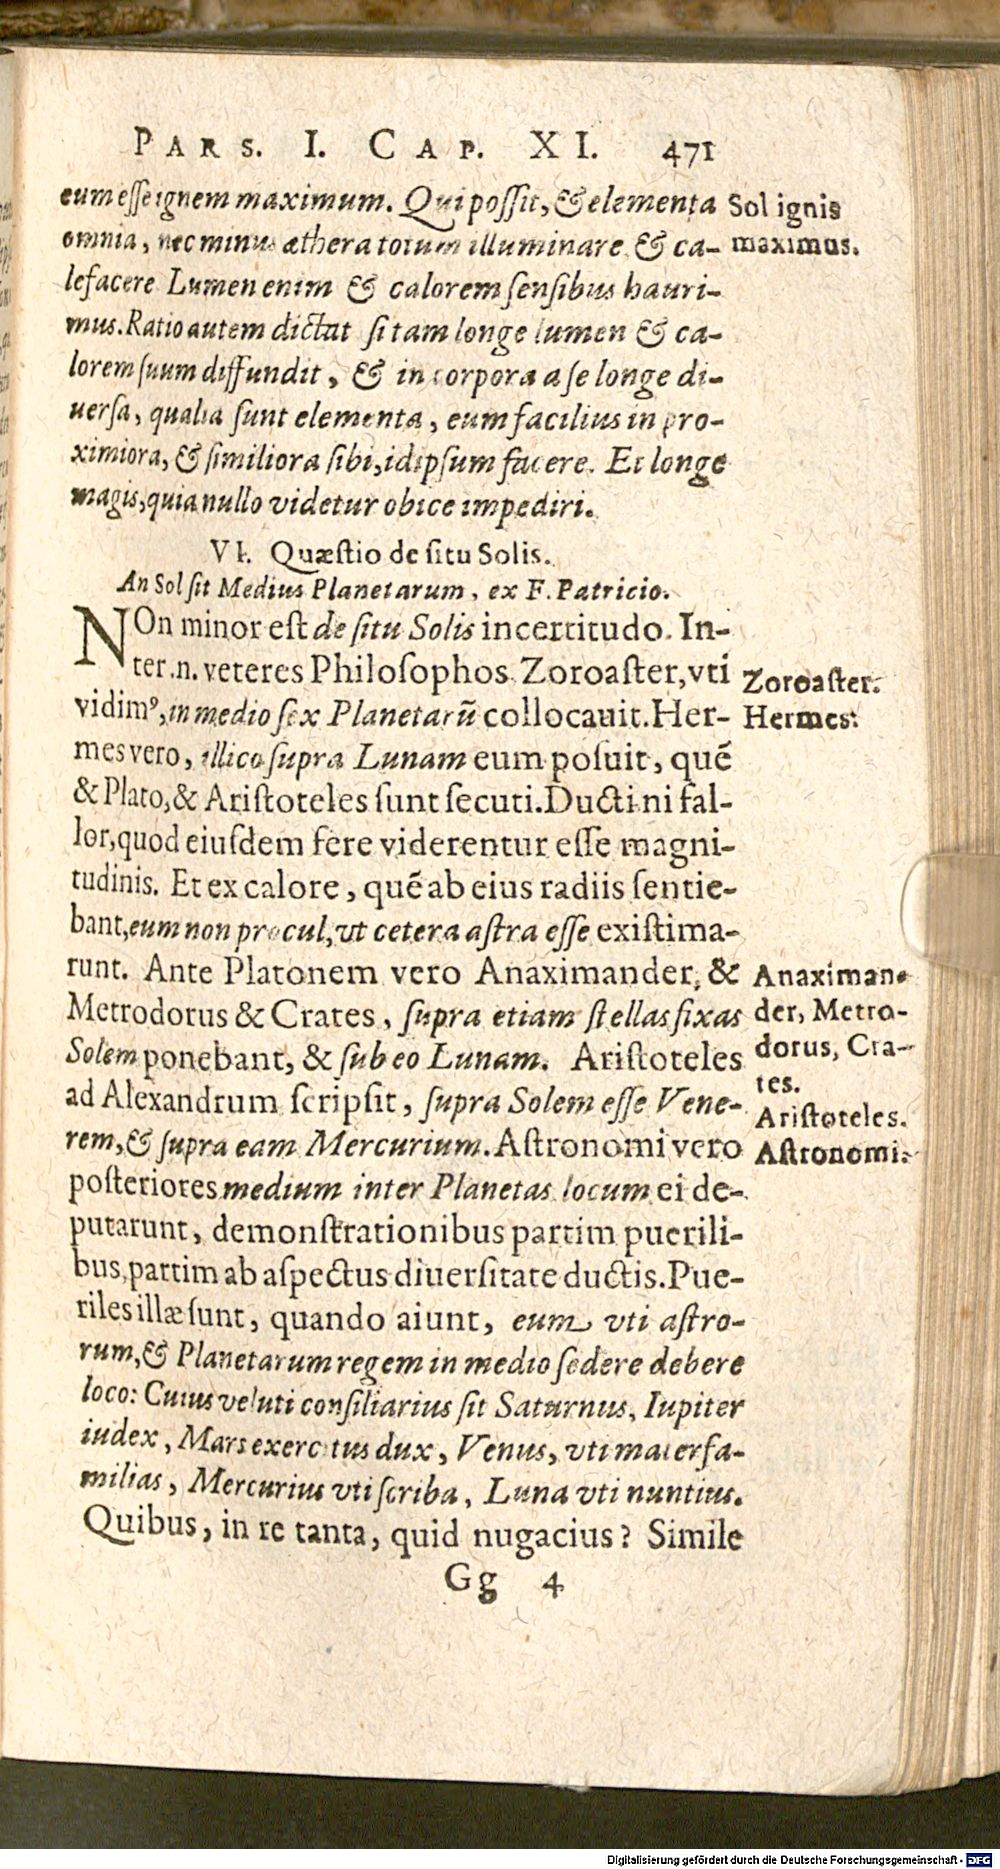 PARS. I. CAP. XI. 471
eum esse ignem maximum. Qui possit, & elementa
omnia, nec minus æthera totum illuminare & ca-
lefacere Lumen enim & calorem sensibus hauri-
mus. Ratio autem dictat si tam longe lumen & ca-
lorem suum diffundit, & in corpora a se longe di-
uersa, qualia sunt elementa, eum facilius in pro-
ximiora, & similiora sibi, idipsum facere. Et longe
magis, quia nullo videtur obice impediri.
Sol ignis
maximus.
VI. Quæstio de situ Solis.
An Sol sit Medius Planetarum, ex F. Patricio.
NOn minor est de situ Solis incertitudo. In-
ter .n. veteres Philosophos Zoroaster, vti
vidimꝰ, in medio sex Planetarũ collocauit. Her-
mes vero, illico supra Lunam eum posuit, quẽ
& Plato, & Aristoteles sunt secuti. Ducti ni fal-
lor, quod eiusdem fere viderentur esse magni-
tudinis. Et ex calore, quẽ ab eius radiis sentie-
bant, eum non procul, vt cetera astra esse existima-
runt. Ante Platonem vero Anaximander, &
Metrodorus & Crates, supra etiam stellas fixas
Solem ponebant, & sub eo Lunam. Aristoteles
ad Alexandrum scripsit, supra Solem esse Vene-
rem, & supra eam Mercurium. Astronomi vero
posteriores medium inter Planetas locum ei de-
putarunt, demonstrationibus partim puerili-
bus, partim ab aspectus diuersitate ductis. Pue-
riles illæ sunt, quando aiunt, eum vti astro-
rum, & Planetarum regem in medio sedere debere
loco: Cuius veluti consiliarius sit Saturnus, Iupiter
iudex, Mars exercitus dux, Venus, vti materfa-
milias, Mercurius vti scriba, Luna vti nuntius.
Quibus, in re tanta, quid nugacius? Simile
Zoroaster.
Hermes.
Anaximan-
der, Metro-
dorus, Cra-
tes.
Aristoteles.
Astronomi.
Gg 4
Digitalisierung gefördert durch die Deutsche Forschungsgemeinschaft - DFG